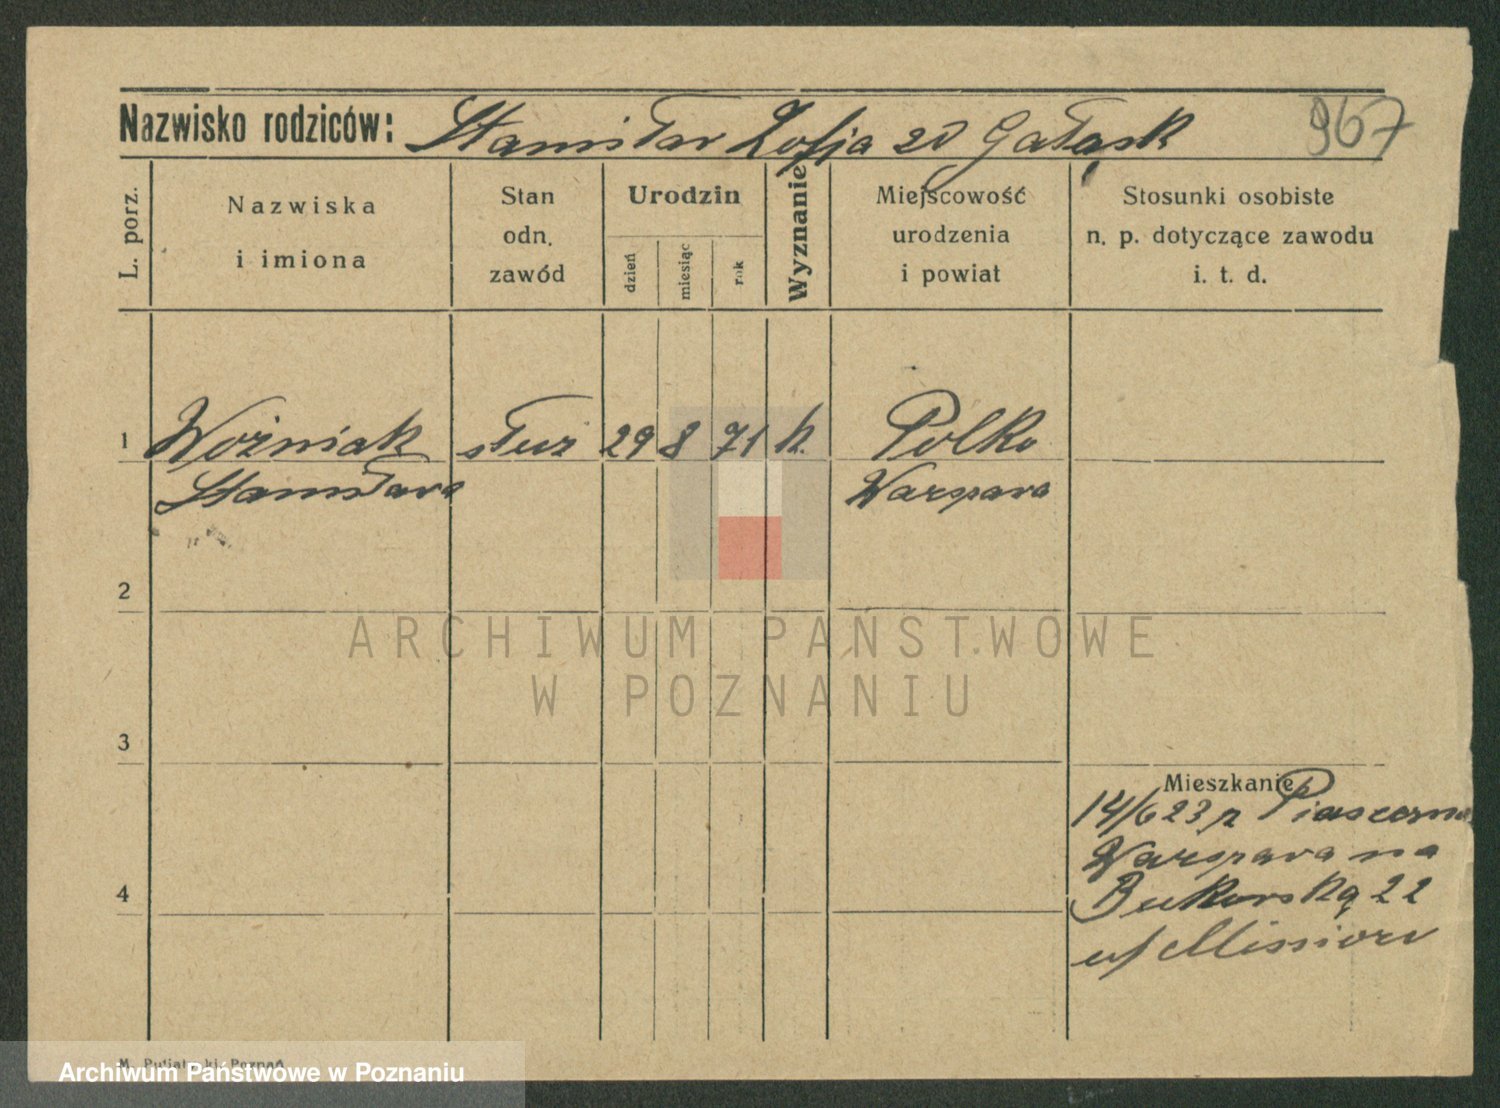 Nazwisko rodziców: Stanisław Zofja zd Gałąsk
967
L. porz.
Nazwiska
i imiona
Stan
odn.
zawód
Urodzin
dzień
miesiąc
rok
Wyznanie
Miejscowość
urodzenia
i powiat
Stosunki osobiste
n. p. dotyczące zawodu
i. t. d.
1 Woźniak służ 29 8 71 k. Polko
Stanisława Warszawa
2
ARCHIWUM PAŃSTWOWE
W POZNANIU
3
Mieszkanie
14/6 23 z
Warszawa na
Bukowską 22
4
u/ Missiow
M. Putiatycki, Poznań
Archiwum Państwowe w Poznaniu